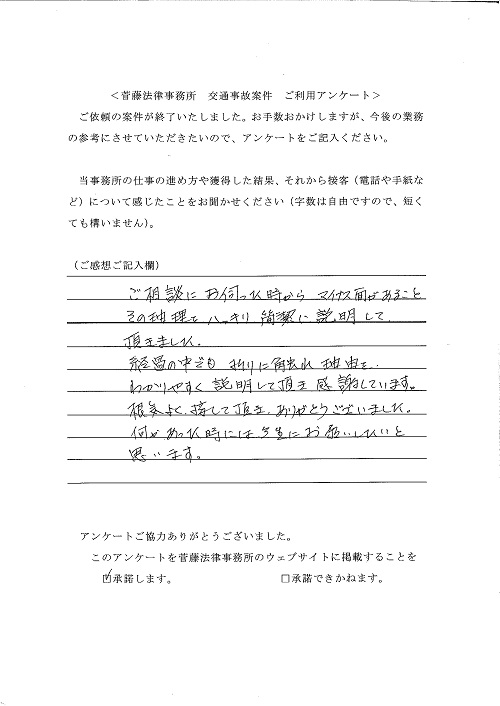 ＜菅藤法律事務所　交通事故案件　ご利用アンケート＞
ご依頼の案件が終了いたしました。お手数おかけしますが、今後の業務
の参考にさせていただきたいので、アンケートをご記入ください。
当事務所の仕事の進め方や獲得した結果、それから接客（電話や手紙な
ど）について感じたことをお聞かせください（字数は自由ですので、短く
ても構いません）。
（ご感想ご記入欄）
ご相談にお伺った時から マイナス面があること
その理由をハッキリ 簡潔に説明して
頂きました。
経過の中でも 折りに触れ 理由を
わかりやすく説明して頂き感謝しています。
根気よく、接して頂き、ありがとうございました。
何かあった時には先生にお願いしたいと
思います。
アンケートご協力ありがとうございました。
このアンケートを菅藤法律事務所のウェブサイトに掲載することを
☑承諾します。　□承諾できかねます。